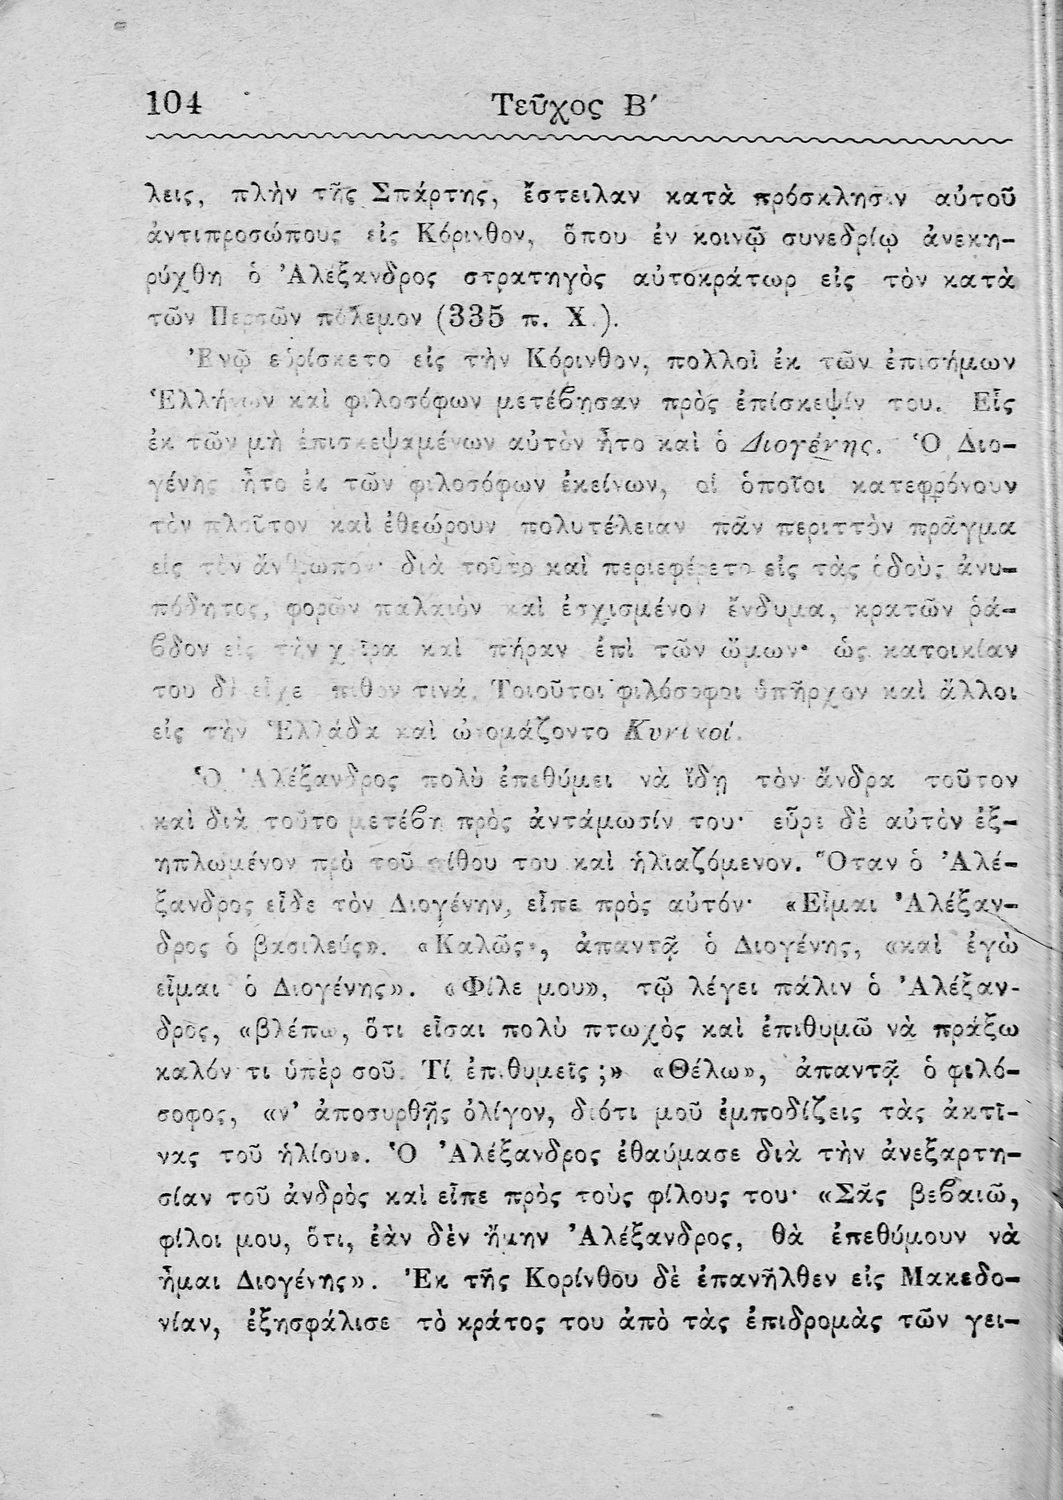 104 Τεῦχος Β′
λεις, πλὴν τῆς Σπάρτης, ἔστειλαν κατὰ πρόσκλησιν αὐτοῦ
ἀντιπροσώπους εἰς Κόρινθον, ὅπου ἐν κοινῷ συνεδρίῳ ἀνεκη-
ρύχθη ὁ Ἀλέξανδρος στρατηγὸς αὐτοκράτωρ εἰς τὸν κατὰ
τῶν Περσῶν πόλεμον (335 π. Χ.).
Ἐνῷ εὑρίσκετο εἰς τὴν Κόρινθον, πολλοὶ ἐκ τῶν ἐπισήμων
Ἑλλήνων καὶ φιλοσόφων μετέβησαν πρὸς ἐπίσκεψίν του. Εἷς
ἐκ τῶν μὴ ἐπισκεψαμένων αὐτὸν ἦτο καὶ ὁ Διογένης. Ὁ Διο-
γένης ἦτο ἐκ τῶν φιλοσόφων ἐκείνων, οἱ ὁποῖοι κατεφρόνουν
τὸν πλοῦτον καὶ ἐθεώρουν πολυτέλειαν πᾶν περιττὸν πρᾶγμα
εἰς τὸν ἄνθρωπον· διὰ τοῦτο καὶ περιεφέρετο εἰς τὰς ὁδοὺς ἀνυ-
πόδητος, φορῶν παλαιὸν καὶ ἐσχισμένον ἔνδυμα, κρατῶν ῥά-
βδον εἰς τὴν χεῖρα καὶ πήραν ἐπὶ τῶν ὤμων· ὡς κατοικίαν
του δὲ εἶχε πίθον τινά. Τοιοῦτοι φιλόσοφοι ὑπῆρχον καὶ ἄλλοι
εἰς τὴν Ἑλλάδα καὶ ὠνομάζοντο Κυνικοί.
Ὁ Ἀλέξανδρος πολὺ ἐπεθύμει νὰ ἴδῃ τὸν ἄνδρα τοῦτον
καὶ διὰ τοῦτο μετέβη πρὸς ἀντάμωσίν του· εὗρε δὲ αὐτὸν ἐξ-
ηπλωμένον πρὸ τοῦ πίθου του καὶ ἡλιαζόμενον. Ὅταν ὁ Ἀλέ-
ξανδρος εἶδε τὸν Διογένην, εἶπε πρὸς αὐτόν· «Εἶμαι Ἀλέξαν-
δρος ὁ βασιλεύς». «Καλῶς», ἀπαντᾷ ὁ Διογένης, «καὶ ἐγὼ
εἶμαι ὁ Διογένης». «Φίλε μου», τῷ λέγει πάλιν ὁ Ἀλέξαν-
δρος, «βλέπω, ὅτι εἶσαι πολὺ πτωχὸς καὶ ἐπιθυμῶ νὰ πράξω
καλόν τι ὑπὲρ σοῦ. Τί ἐπιθυμεῖς ;» «Θέλω», ἀπαντᾷ ὁ φιλό-
σοφος, «ν’ ἀποσυρθῇς ὀλίγον, διότι μοῦ ἐμποδίζεις τὰς ἀκτῖ-
νας τοῦ ἡλίου». Ὁ Ἀλέξανδρος ἐθαύμασε διὰ τὴν ἀνεξαρτη-
σίαν τοῦ ἀνδρὸς καὶ εἶπε πρὸς τοὺς φίλους του· «Σᾶς βεβαιῶ,
φίλοι μου, ὅτι, ἐὰν δὲν ἤμην Ἀλέξανδρος, θὰ ἐπεθύμουν νὰ
ἦμαι Διογένης». Ἐκ τῆς Κορίνθου δὲ ἐπανῆλθεν εἰς Μακεδο-
νίαν, ἐξησφάλισε τὸ κράτος του ἀπὸ τὰς ἐπιδρομὰς τῶν γει-